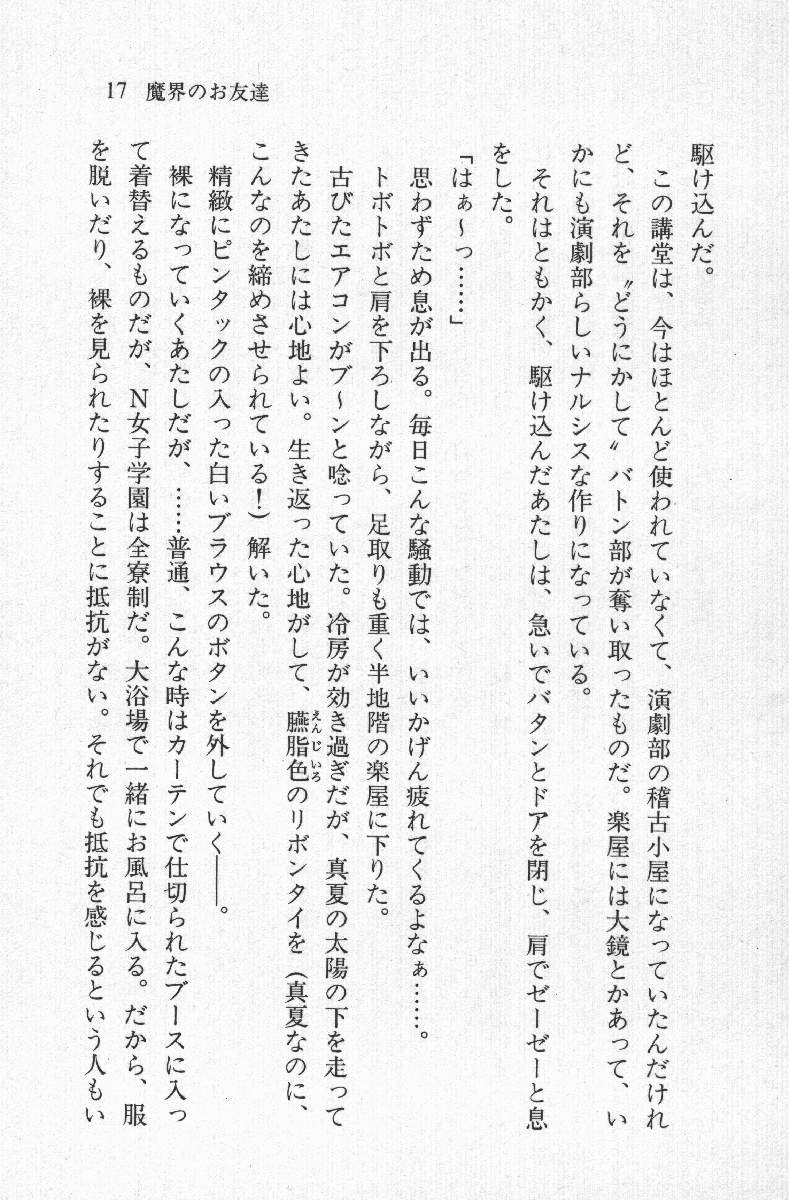 17 魔界のお友達
駆け込んだ。
　この講堂は、今はほとんど使われていなくて、演劇部の稽古小屋になっていたんだけれ
ど、それを〝どうにかして〟バトン部が奪い取ったものだ。楽屋には大鏡とかあって、い
かにも演劇部らしいナルシスな作りになっている。
　それはともかく、駆け込んだあたしは、急いでバタンとドアを閉じ、肩でゼーゼーと息
をした。
「はぁ～っ……」
　思わずため息が出る。毎日こんな騒動では、いいかげん疲れてくるよなぁ……。
　トボトボと肩を下ろしながら、足取りも重く半地階の楽屋に下りた。
　古びたエアコンがブ～ンと唸っていた。冷房が効き過ぎだが、真夏の太陽の下を走って
きたあたしには心地よい。生き返った心地がして、臙脂色のリボンタイを（真夏なのに、
えんじいろ
こんなのを締めさせられている！）解いた。
　精緻にピンタックの入った白いブラウスのボタンを外していく――。
　裸になっていくあたしだが、……普通、こんな時はカーテンで仕切られたブースに入っ
て着替えるものだが、N女子学園は全寮制だ。大浴場で一緒にお風呂に入る。だから、服
を脱いだり、裸を見られたりすることに抵抗がない。それでも抵抗を感じるという人もい